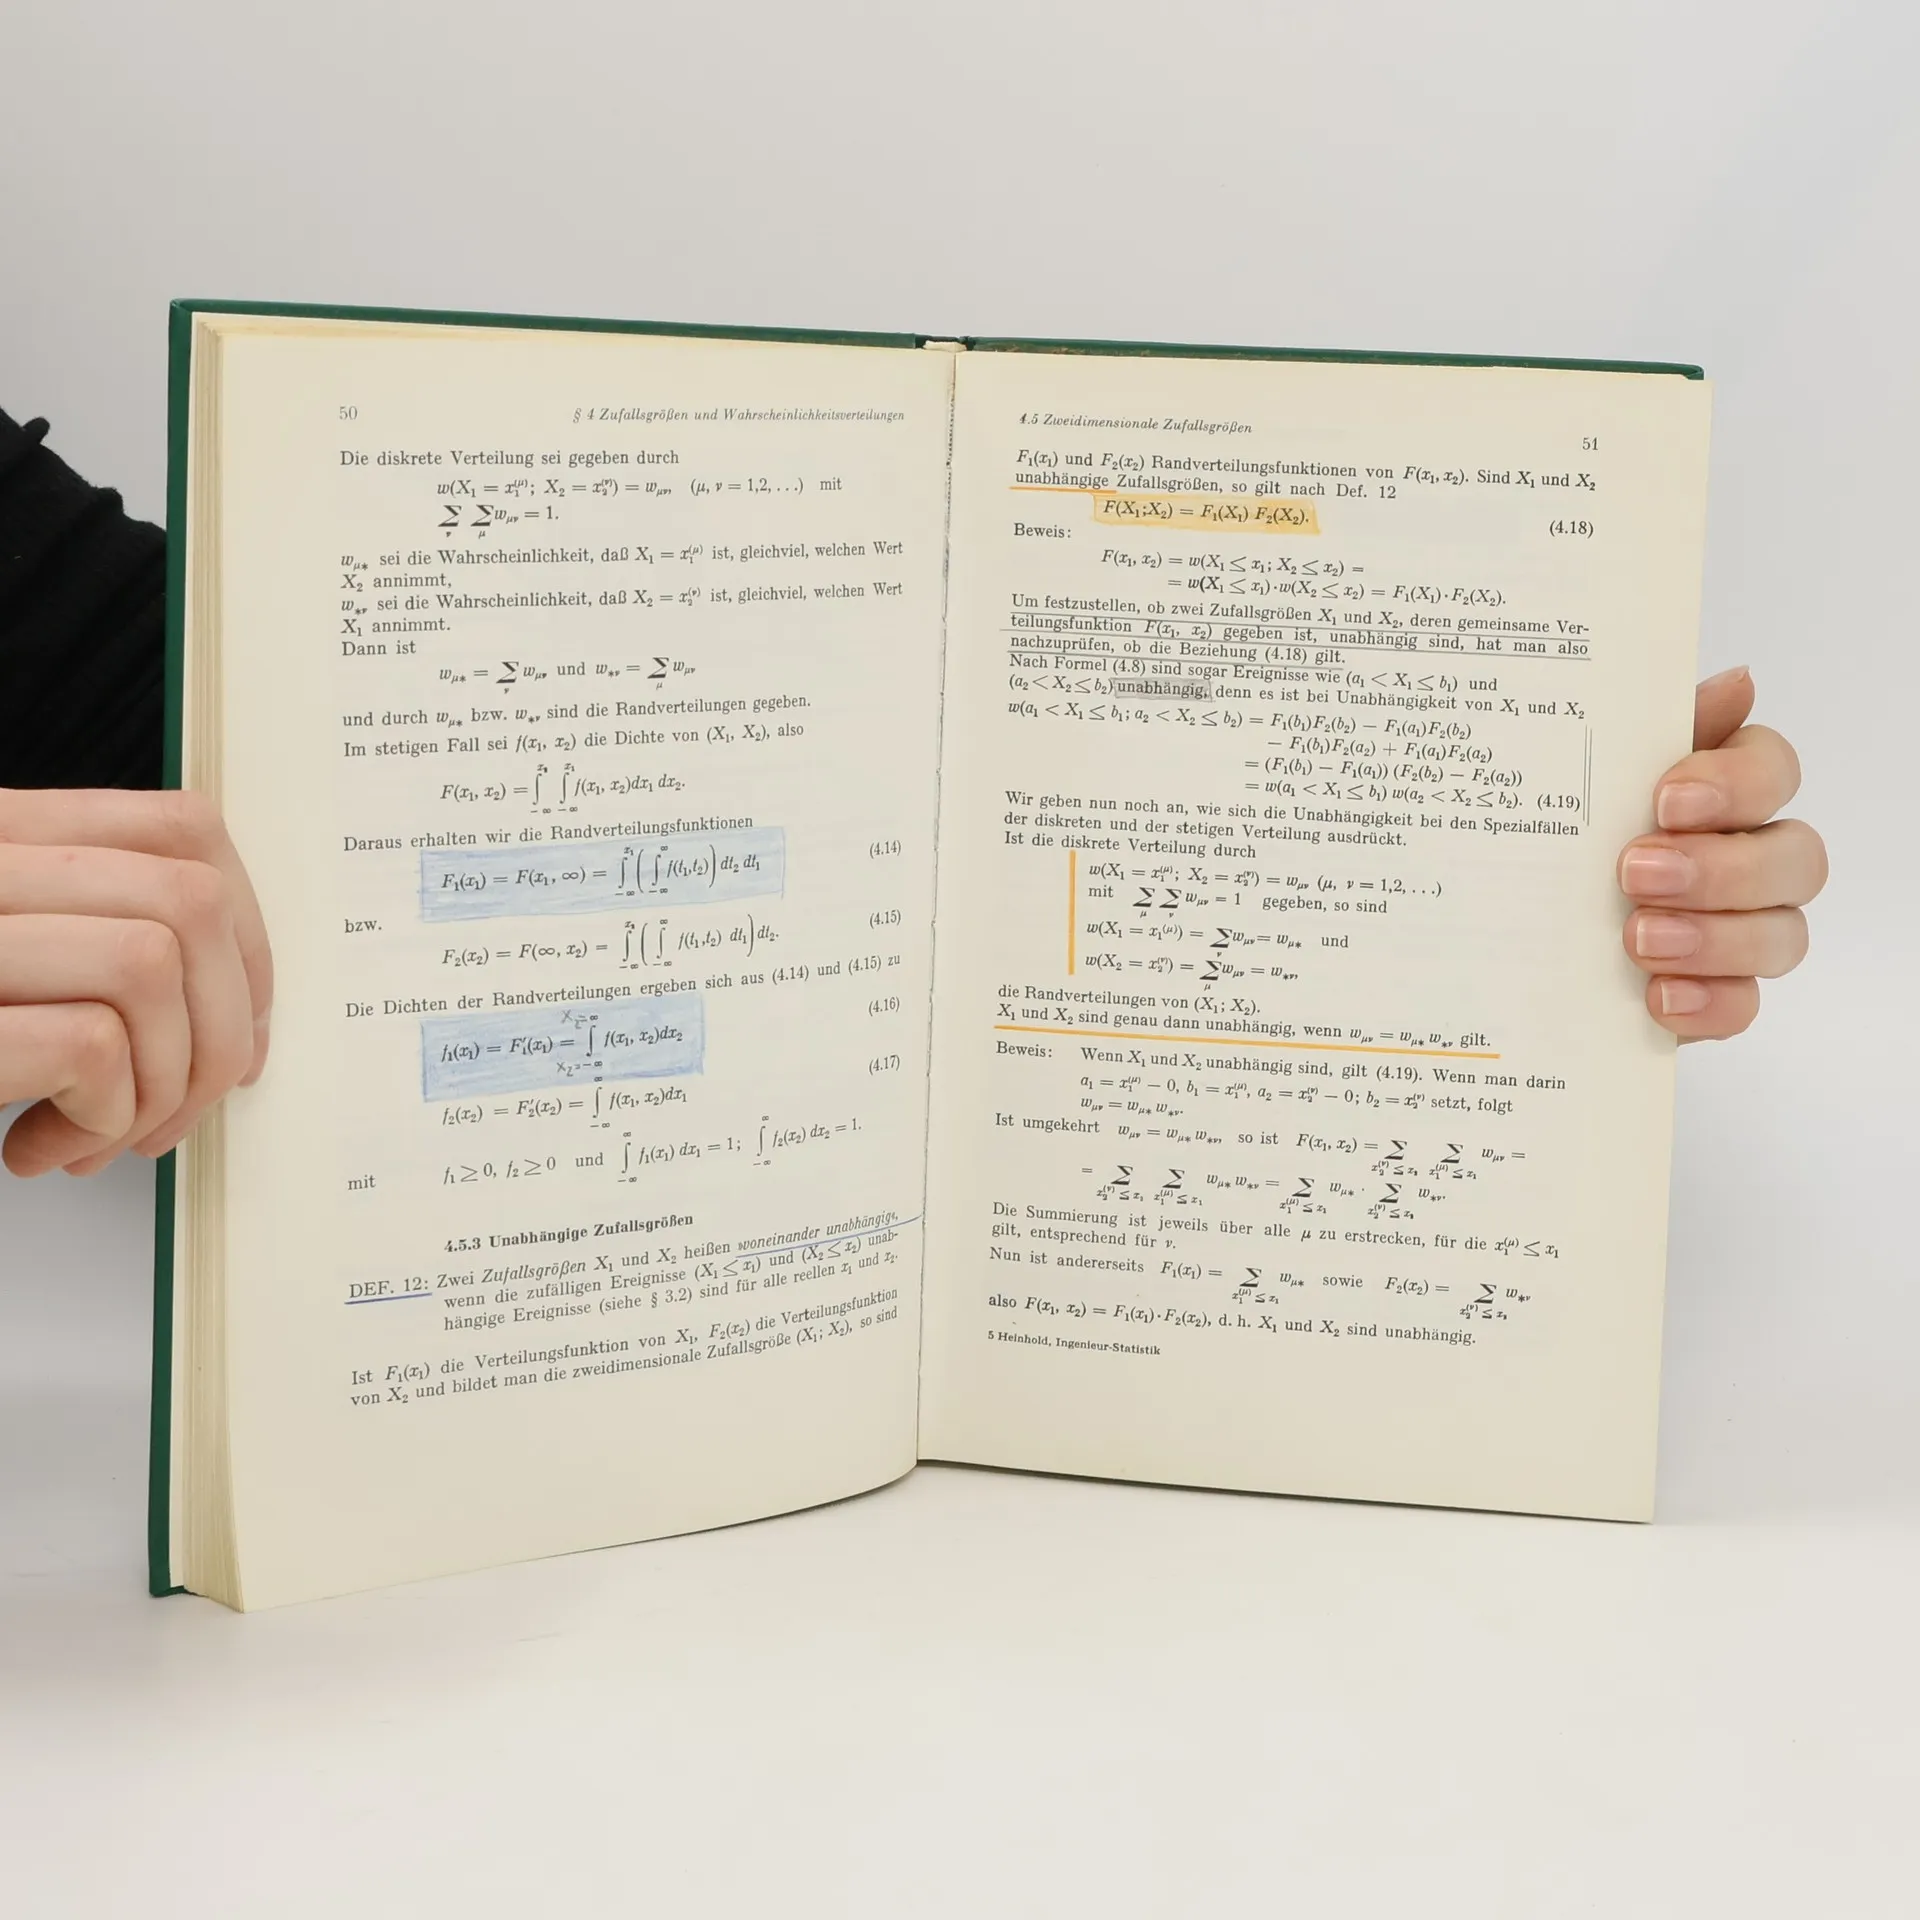 50
§ 4 Zufallsgrößen und Wahrscheinlichkeitsverteilungen
Die diskrete Verteilung sei gegeben durch
w(X₁ = x₁⁽ᵘ⁾; X₂ = x₂⁽ᵛ⁾) = w_μν, (μ, ν = 1,2, ...) mit
∑_ν ∑_μ w_μν = 1.
w_μ* sei die Wahrscheinlichkeit, daß X₁ = x₁^(μ) ist, gleichviel, welchen Wert
X₂ annimmt,
w_*ν sei die Wahrscheinlichkeit, daß X₂ = x₂^(ν) ist, gleichviel, welchen Wert
X₁ annimmt.
Dann ist
w_μ* = ∑_ν w_μν und w_*ν = ∑_μ w_μν
und durch w_μ* bzw. w_*ν sind die Randverteilungen gegeben.
Im stetigen Fall sei f(x₁, x₂) die Dichte von (X₁, X₂), also
F(x₁, x₂) = ∫_{-∞}^{x₂} ∫_{-∞}^{x₁} f(x₁, x₂)dx₁ dx₂.
Daraus erhalten wir die Randverteilungsfunktionen
F₁(x₁) = F(x₁, ∞) = ∫_{-∞}^{x₁} ( ∫_{-∞}^{∞} f(t₁,t₂) ) dt₂ dt₁ (4.14)
bzw.
F₂(x₂) = F(∞, x₂) = ∫_{-∞}^{x₂} ( ∫_{-∞}^{∞} f(t₁,t₂) dt₁ ) dt₂. (4.15)
Die Dichten der Randverteilungen ergeben sich aus (4.14) und (4.15) zu
X₂=
f₁(x₁) = F₁′(x₁) = ∫_{-∞}^{∞} f(x₁, x₂)dx₂ (4.16)
X₂=
f₂(x₂) = F₂′(x₂) = ∫_{-∞}^{∞} f(x₁, x₂)dx₁ (4.17)
mit f₁ ≥ 0, f₂ ≥ 0 und ∫_{-∞}^{∞} f₁(x₁) dx₁ = 1; ∫_{-∞}^{∞} f₂(x₂) dx₂ = 1.
4.5.3 Unabhängige Zufallsgrößen
DEF. 12: Zwei Zufallsgrößen X₁ und X₂ heißen voneinander unabhängig,
wenn die zufälligen Ereignisse (X₁ ≤ x₁) und (X₂ ≤ x₂) unab-
hängige Ereignisse (siehe § 3.2) sind für alle reellen x₁ und x₂.
Ist F₁(x₁) die Verteilungsfunktion von X₁, F₂(x₂) die Verteilungsfunktion
von X₂ und bildet man die zweidimensionale Zufallsgröße (X₁; X₂), so sind
4.5 Zweidimensionale Zufallsgrößen
51
F₁(x₁) und F₂(x₂) Randverteilungsfunktionen von F(x₁, x₂). Sind X₁ und X₂
unabhängige Zufallsgrößen, so gilt nach Def. 12
F(X₁;X₂) = F₁(X₁) F₂(X₂). (4.18)
Beweis:
F(x₁, x₂) = w(X₁ ≤ x₁; X₂ ≤ x₂) =
= w(X₁ ≤ x₁)·w(X₂ ≤ x₂) = F₁(X₁)·F₂(X₂).
Um festzustellen, ob zwei Zufallsgrößen X₁ und X₂, deren gemeinsame Ver-
teilungsfunktion F(x₁, x₂) gegeben ist, unabhängig sind, hat man also
nachzuprüfen, ob die Beziehung (4.18) gilt.
Nach Formel (4.8) sind sogar Ereignisse wie (a₁ < X₁ ≤ b₁) und
(a₂ < X₂ ≤ b₂) unabhängig, denn es ist bei Unabhängigkeit von X₁ und X₂
w(a₁ < X₁ ≤ b₁; a₂ < X₂ ≤ b₂) = F₁(b₁)F₂(b₂) − F₁(a₁)F₂(b₂)
− F₁(b₁)F₂(a₂) + F₁(a₁)F₂(a₂)
= (F₁(b₁) − F₁(a₁)) (F₂(b₂) − F₂(a₂))
= w(a₁ < X₁ ≤ b₁) w(a₂ < X₂ ≤ b₂). (4.19)
Wir geben nun noch an, wie sich die Unabhängigkeit bei den Spezialfällen
der diskreten und der stetigen Verteilung ausdrückt.
Ist die diskrete Verteilung durch
w(X₁ = x₁^(μ); X₂ = x₂^(ν)) = w_μν (μ, ν = 1,2, ...)
mit ∑_μ ∑_ν w_μν = 1 gegeben, so sind
w(X₁ = x₁^(μ)) = ∑_ν w_μν = w_μ* und
w(X₂ = x₂^(ν)) = ∑_μ w_μν = w_*ν,
die Randverteilungen von (X₁; X₂).
X₁ und X₂ sind genau dann unabhängig, wenn w_μν = w_μ* w_*ν gilt.
Beweis: Wenn X₁ und X₂ unabhängig sind, gilt (4.19). Wenn man darin
a₁ = x₁^(μ) − 0, b₁ = x₁^(μ), a₂ = x₂^(ν) − 0; b₂ = x₂^(ν) setzt, folgt
w_μν = w_μ* w_*ν.
Ist umgekehrt w_μν = w_μ* w_*ν, so ist F(x₁, x₂) = ∑_{x₂^(ν) ≤ x₂} ∑_{x₁^(μ) ≤ x₁} w_μν =
= ∑_{x₂^(ν) ≤ x₂} ∑_{x₁^(μ) ≤ x₁} w_μ* w_*ν = ∑_{x₁^(μ) ≤ x₁} w_μ* · ∑_{x₂^(ν) ≤ x₂} w_*ν.
Die Summierung ist jeweils über alle μ zu erstrecken, für die x₁^(μ) ≤ x₁
gilt, entsprechend für ν.
Nun ist andererseits F₁(x₁) = ∑_{x₁^(μ) ≤ x₁} w_μ* sowie F₂(x₂) = ∑_{x₂^(ν) ≤ x₂} w_*ν
also F(x₁, x₂) = F₁(x₁)·F₂(x₂), d. h. X₁ und X₂ sind unabhängig.
5 Heinhold, Ingenieur-Statistik